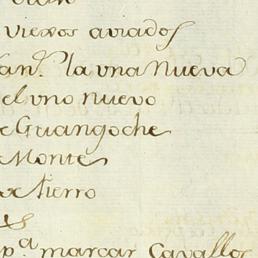 viexos aviados
an.s la una nueva
el uno nuevo
e Guangoche
e Monte
e fierro
es
p.a marcar Cavallos